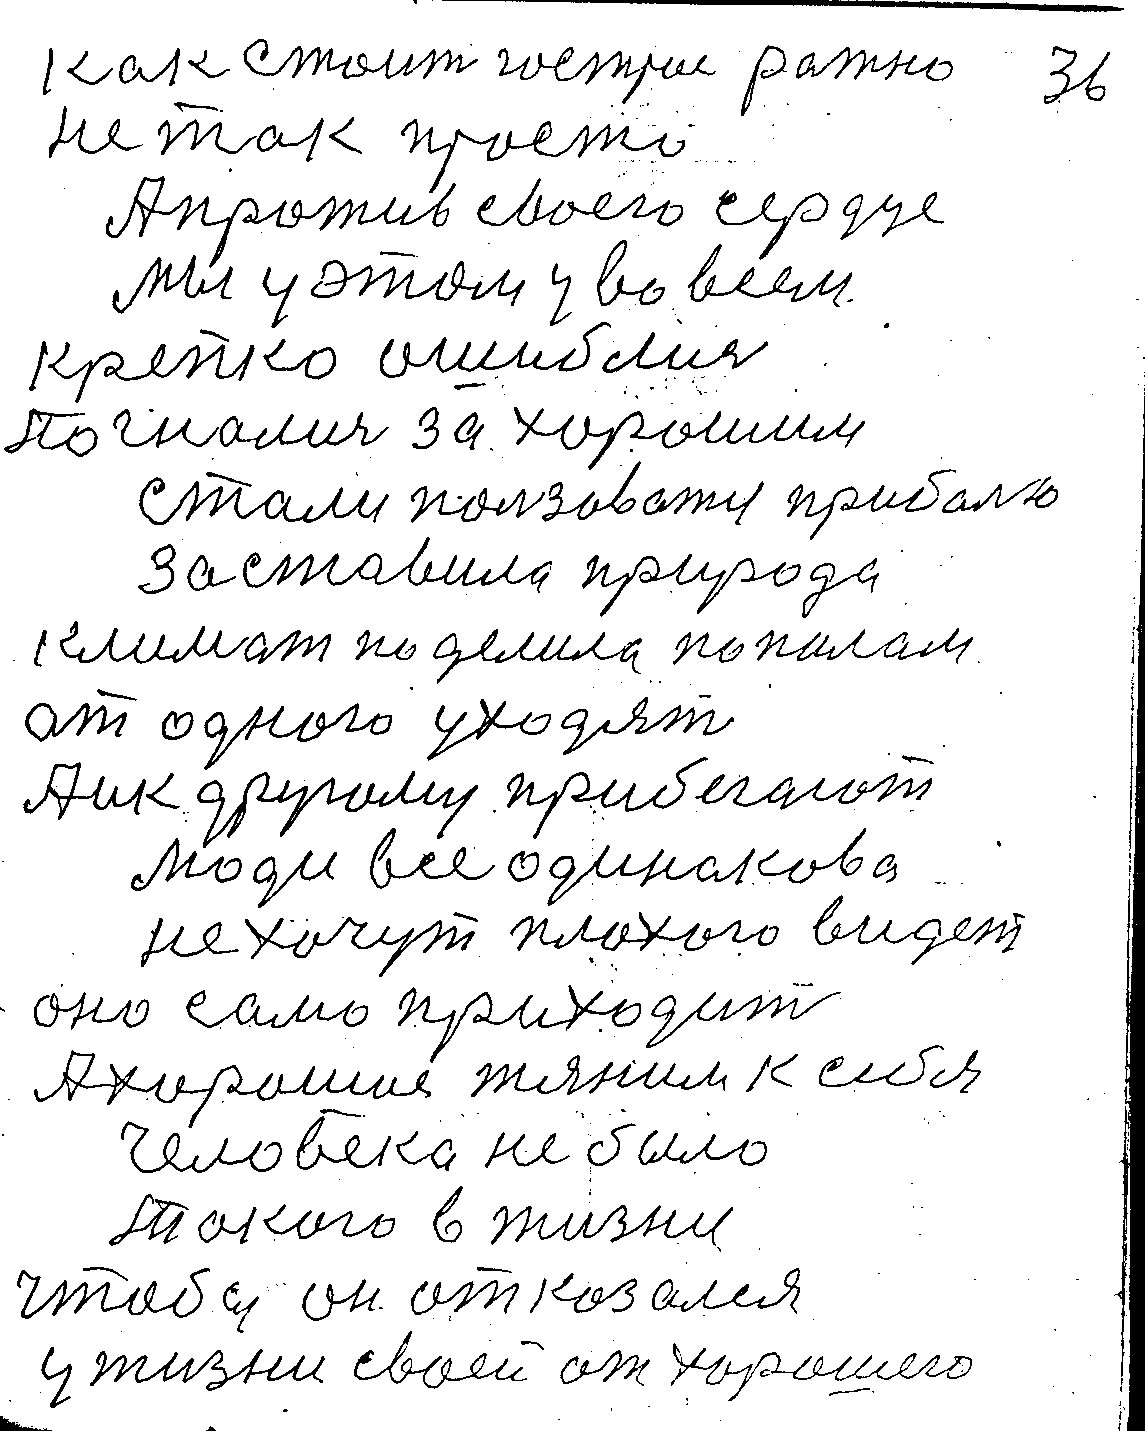 как стоит гострое ратно 36
не так просто
А против своего сердце
мы у этом у во всем
крепко ошиблия
погналия за хорошим
стали ползовату прибалю
заставила природа
климат поделила пополам
от одного уходят
А и к другому прибегают
люди все одинакова
не хочут плохого видет
оно само приходит
А хорошое тяним к себя
человека не было
такого в жизни
чтобы он отказался
у жизни своей от хорошего